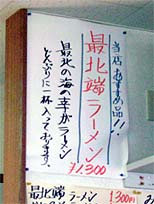 当店おすすめ品!!
最北端ラーメン
¥1,300
最北の海の幸がラーメン
どんぶりに一杯入っております。
最北端ラーメン 1,300円